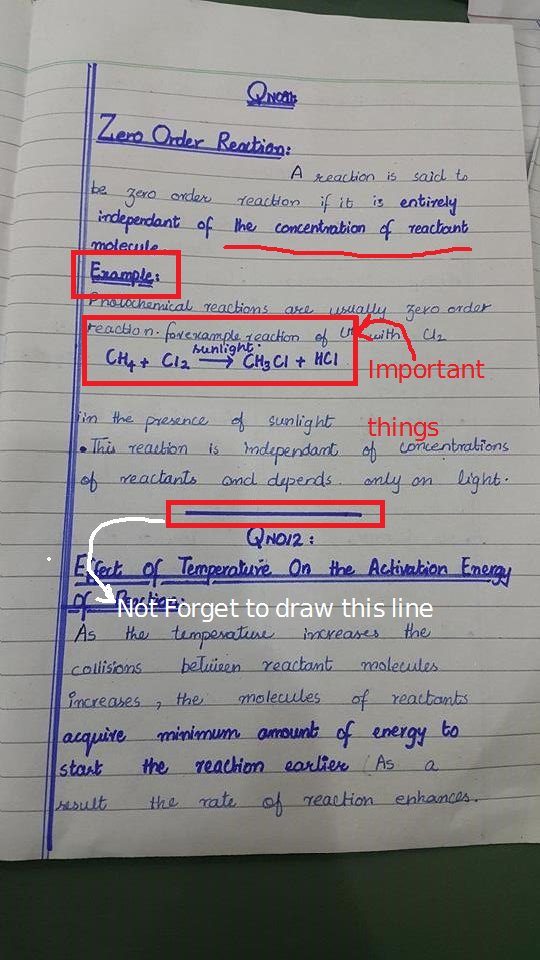 QNO01:
Zero Order Reaction:
A reaction is said to
be zero order reaction if it is entirely
independant of the concentration of reactant
molecule
Example:
Photochemical reactions are usually zero order
reaction. for example reaction of with Cl2
CH4 + Cl2 sunlight → CH3Cl + HCl
Important
things
in the presence of sunlight
• This reaction is independant of concentrations
of reactants and depends only on light.
QNO12:
Effect Of Temperature On the Activation Energy
Of Reaction:
Not Forget to draw this line
As the temperature increases the
collisions between reactant molecules
increases, the molecules of reactants
acquire minimum amount of energy to
start the reaction earlier (As a
result the rate of reaction enhances.